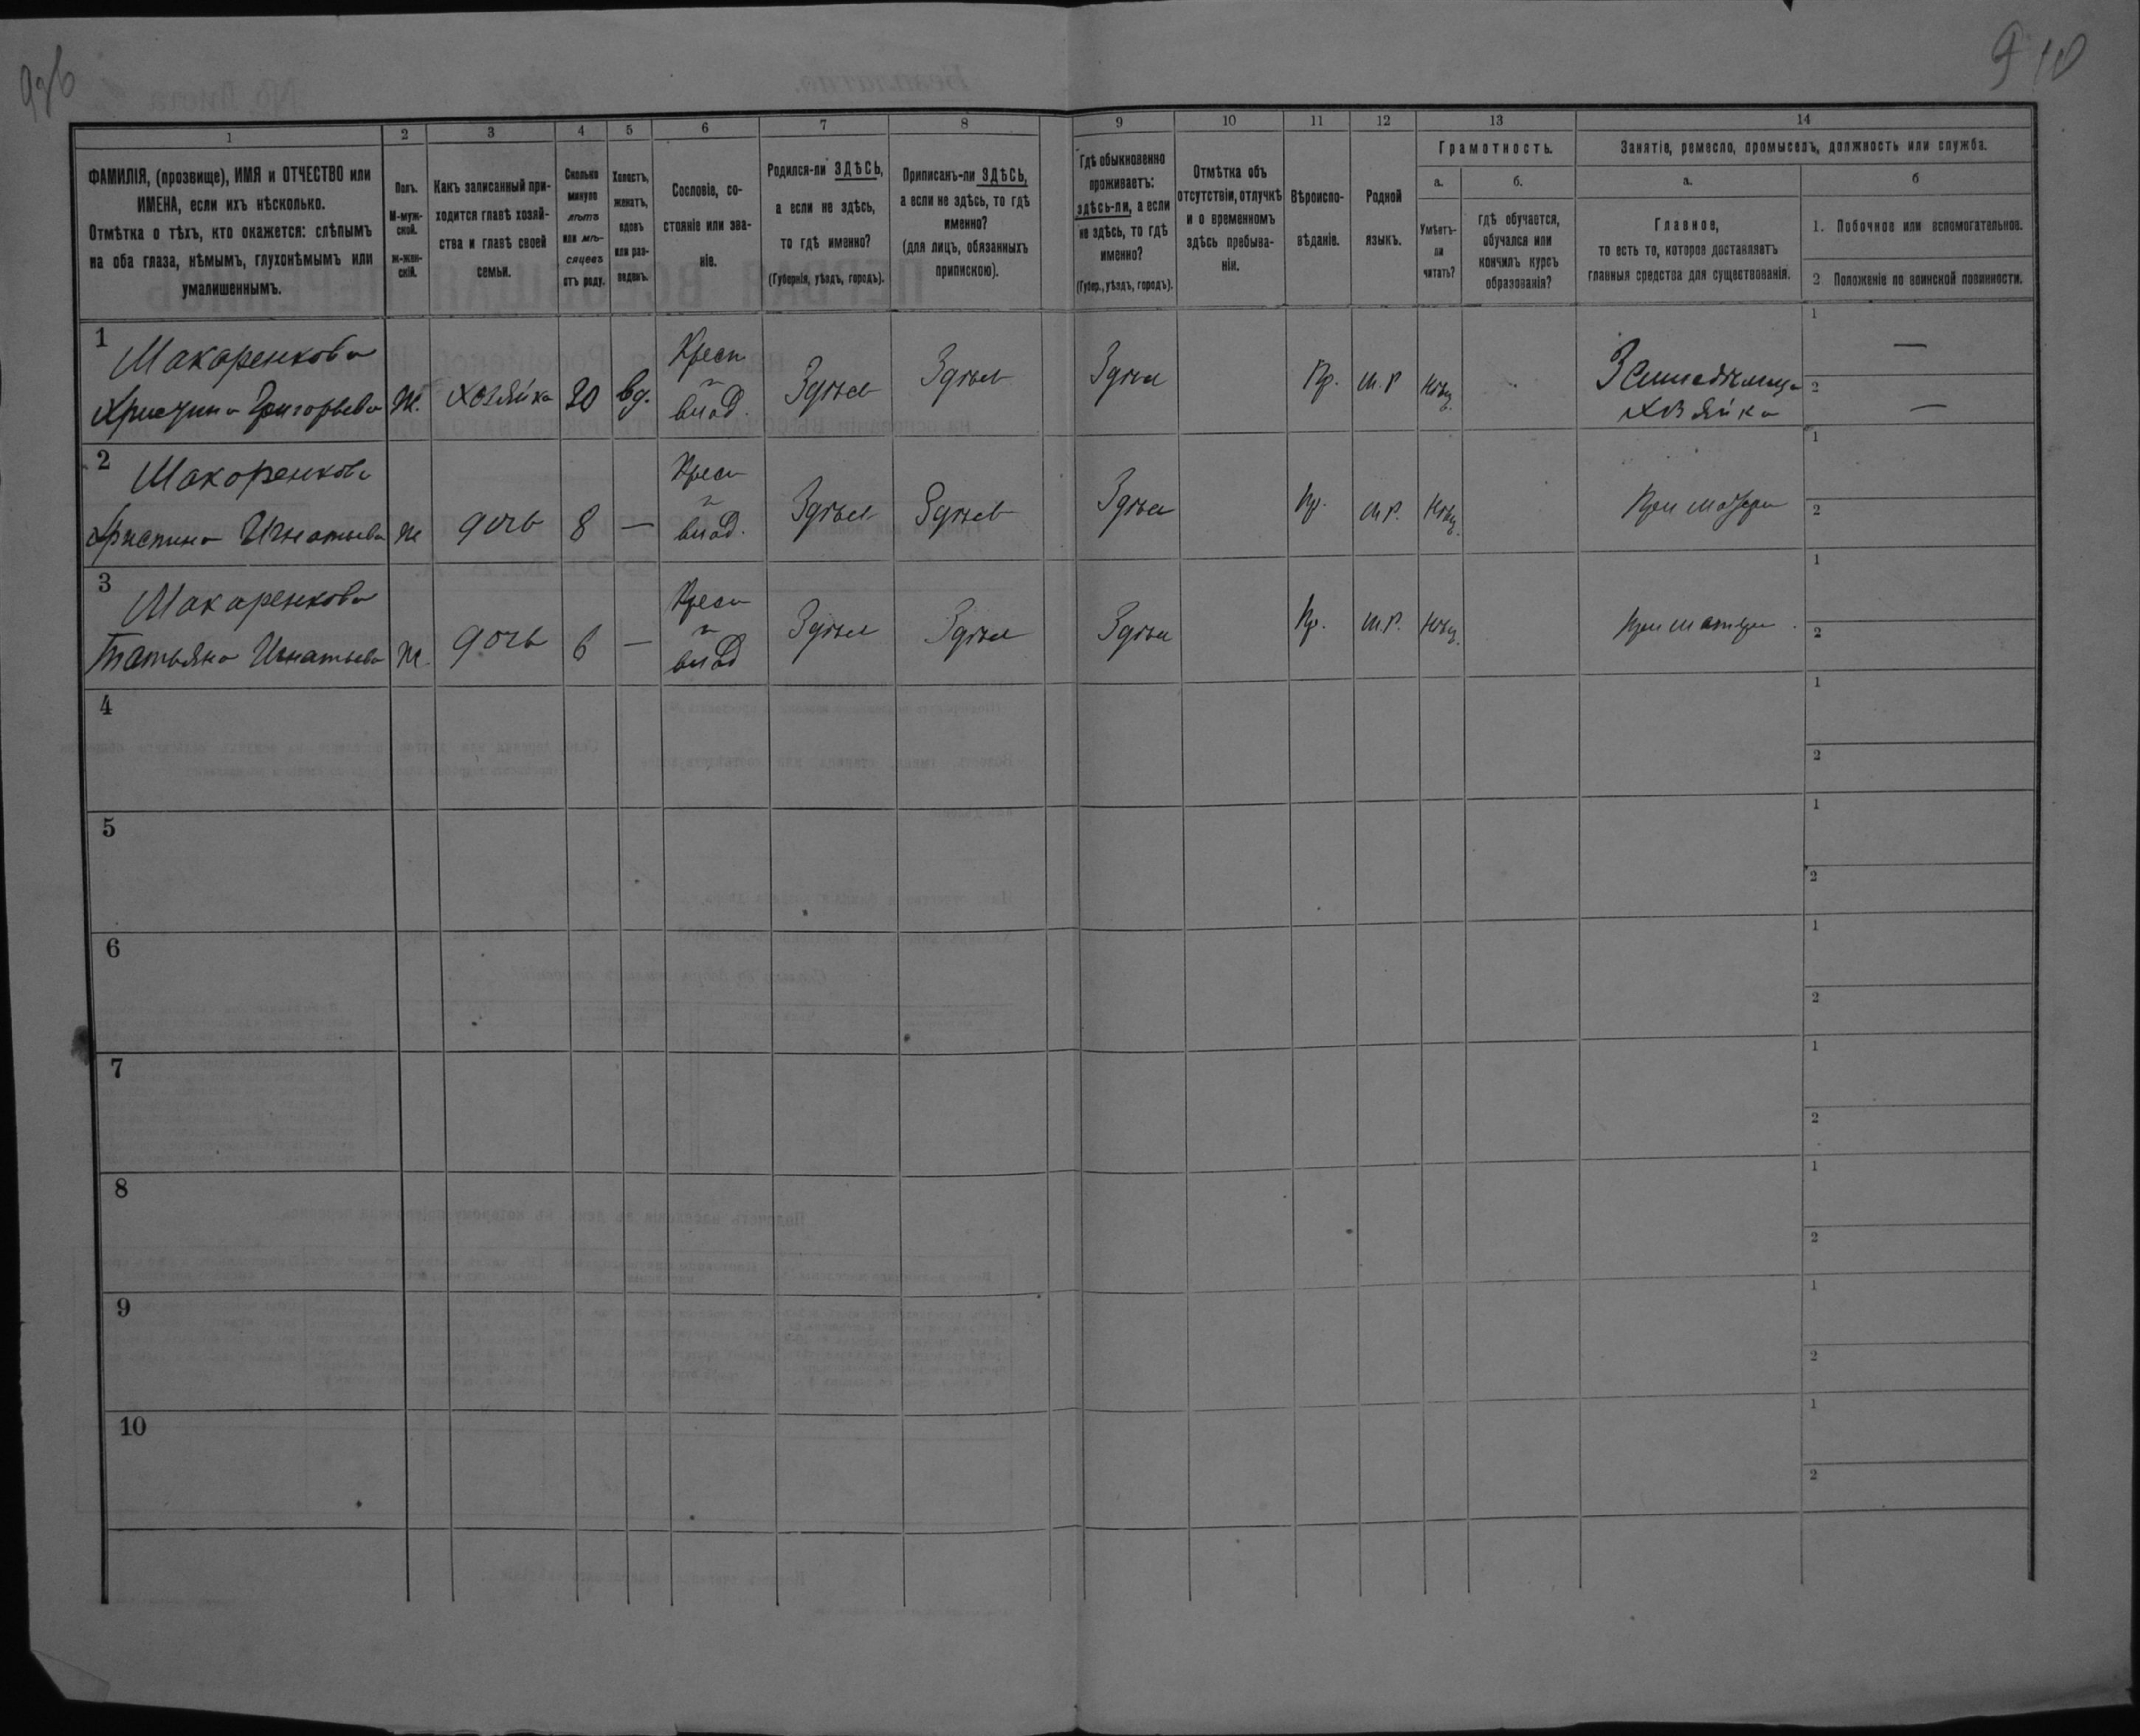 9 10
1 2 3 4 5 6 7 8 9 10 11 12 13 14
ФАМИЛІЯ, (прозвище), ИМЯ и ОТЧЕСТВО или
ИМЕНА, если ихъ нѣсколько.
Отмѣтка о тѣхъ, кто окажется: слѣпымъ
на оба глаза, нѣмымъ, глухонѣмымъ или
умалишеннымъ.
Полъ.
М-муж-
ской.
Ж-жен-
скій.
Какъ записанный при-
ходится главѣ хозяй-
ства и главѣ своей
семьи.
Сколько
минуло
лѣтъ
или мѣ-
сяцевъ
отъ роду.
Холостъ,
женатъ,
вдовъ
или раз-
веденъ.
Сословіе, со-
стояніе или зва-
ніе.
Родился-ли ЗДѢСЬ,
а если не здѣсь,
то гдѣ именно?
(Губернія, уѣздъ, городъ).
Приписанъ-ли ЗДѢСЬ,
а если не здѣсь, то гдѣ
именно?
(для лицъ, обязанныхъ
припискою).
Гдѣ обыкновенно
проживаетъ:
здѣсь-ли, а если
не здѣсь, то гдѣ
именно?
(Губер., уѣздъ, городъ).
Отмѣтка объ
отсутствіи, отлучкѣ
и о временномъ
здѣсь пребыва-
ніи.
Вѣроиспо-
вѣданіе.
Родной
языкъ.
Грамотность.
а.
Умѣетъ-
ли
читать?
б.
гдѣ обучается,
обучался или
кончилъ курсъ
образованія?
Занятіе, ремесло, промыселъ, должность или служба.
а.
Главное,
то есть то, которое доставляетъ
главныя средства для существованія.
б
1. Побочное или вспомогательное.
2 Положеніе по воинской повинности.
1
Макаренкова
Христина Григорьева
Ж.
хозяйка
30
вд.
Крест
влад.
Здѣсь
Здѣсь
Здѣсь
Пр.
М.Р
Нѣтъ
хозяйка
1 —
2 —
2
Макоренкова
Христина Игнатьева
Ж
дочь
8
—
Крест
влад.
Здѣсь
Здѣсь
Здѣсь
Пр.
М.Р.
Нѣтъ
При матери
1
2
3
Макаренкова
Татьяна Игнатьева
Ж.
дочь
6
—
Крест
влад
Здѣсь
Здѣсь
Здѣсь
Пр.
М.Р.
Нѣтъ
При матери
1
2
4
1
2
5
1
2
6
1
2
7
1
2
8
1
2
9
1
2
10
1
2